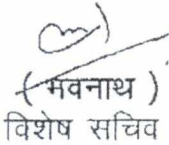 ( भवनाथ )
विशेष सचिव